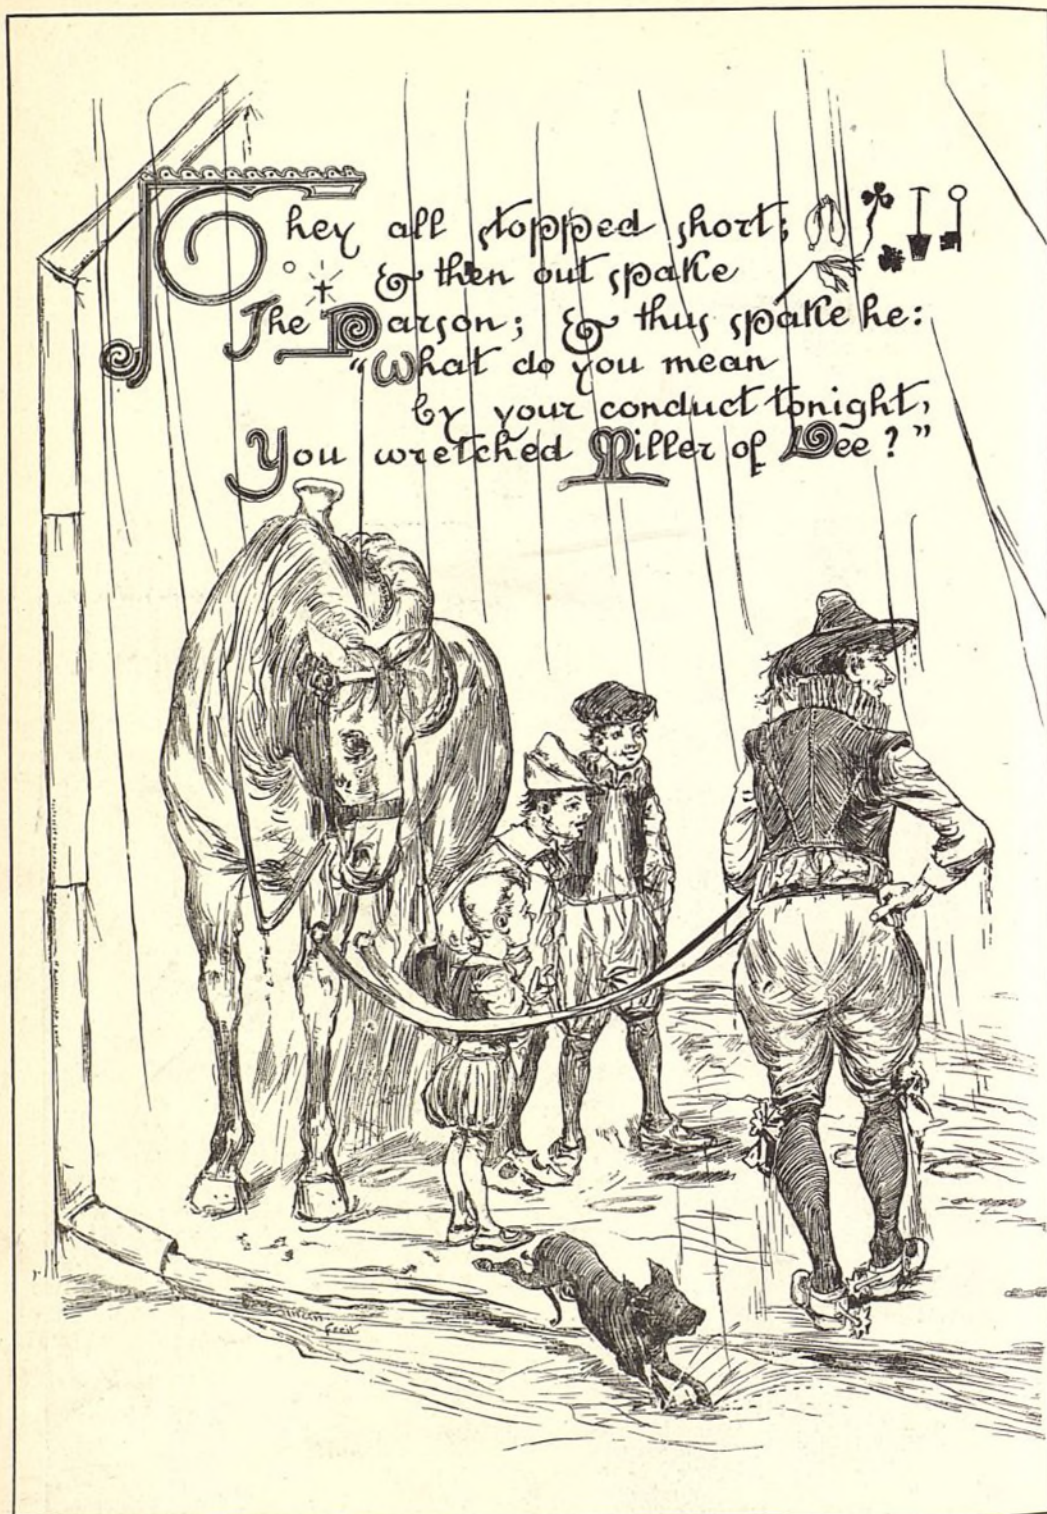 They all stopped short;
& then out spake
The Parson; & thus spake he:
"What do you mean
by your conduct tonight,
You wretched Miller of Dee?"